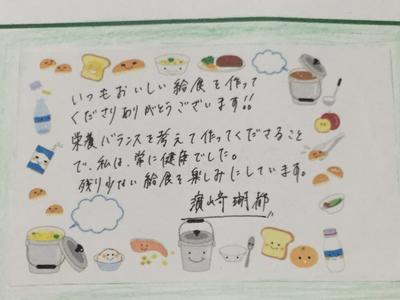 いつもおいしい給食を作って
くださりありがとうございます!!
栄養バランスを考えて作ってくださること
で、私は、常に健康でした。
残り少ない給食を楽しみにしています。
濵崎 瑚都